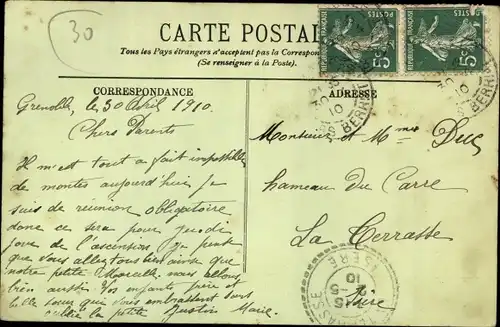 30
CARTE POSTALE
Tous les Pays étrangers n'acceptent pas la Correspon
(Se renseigner à la Poste).
POSTES
5c
POSTES
5c
CORRESPONDANCE
ADRESSE
Grenoble, le 30 Avril 1910.
Chers Parents
Il m'est tout a fait impossible
de monter aujourd'hui Je
suis de réunion obligatoire
donc ce sera pour jeudi
jour de l'ascension Je pense
que vous allez tous bien ainsi que
notre petite Marcelle, nous allons
bien aussi. Vos enfants frère et
belle soeur qui vous embrassent sans
oublier la petite Justin Marie
Monsieur et Mme Duc
hameau du Carre
La Terrasse
Isère
ISERE